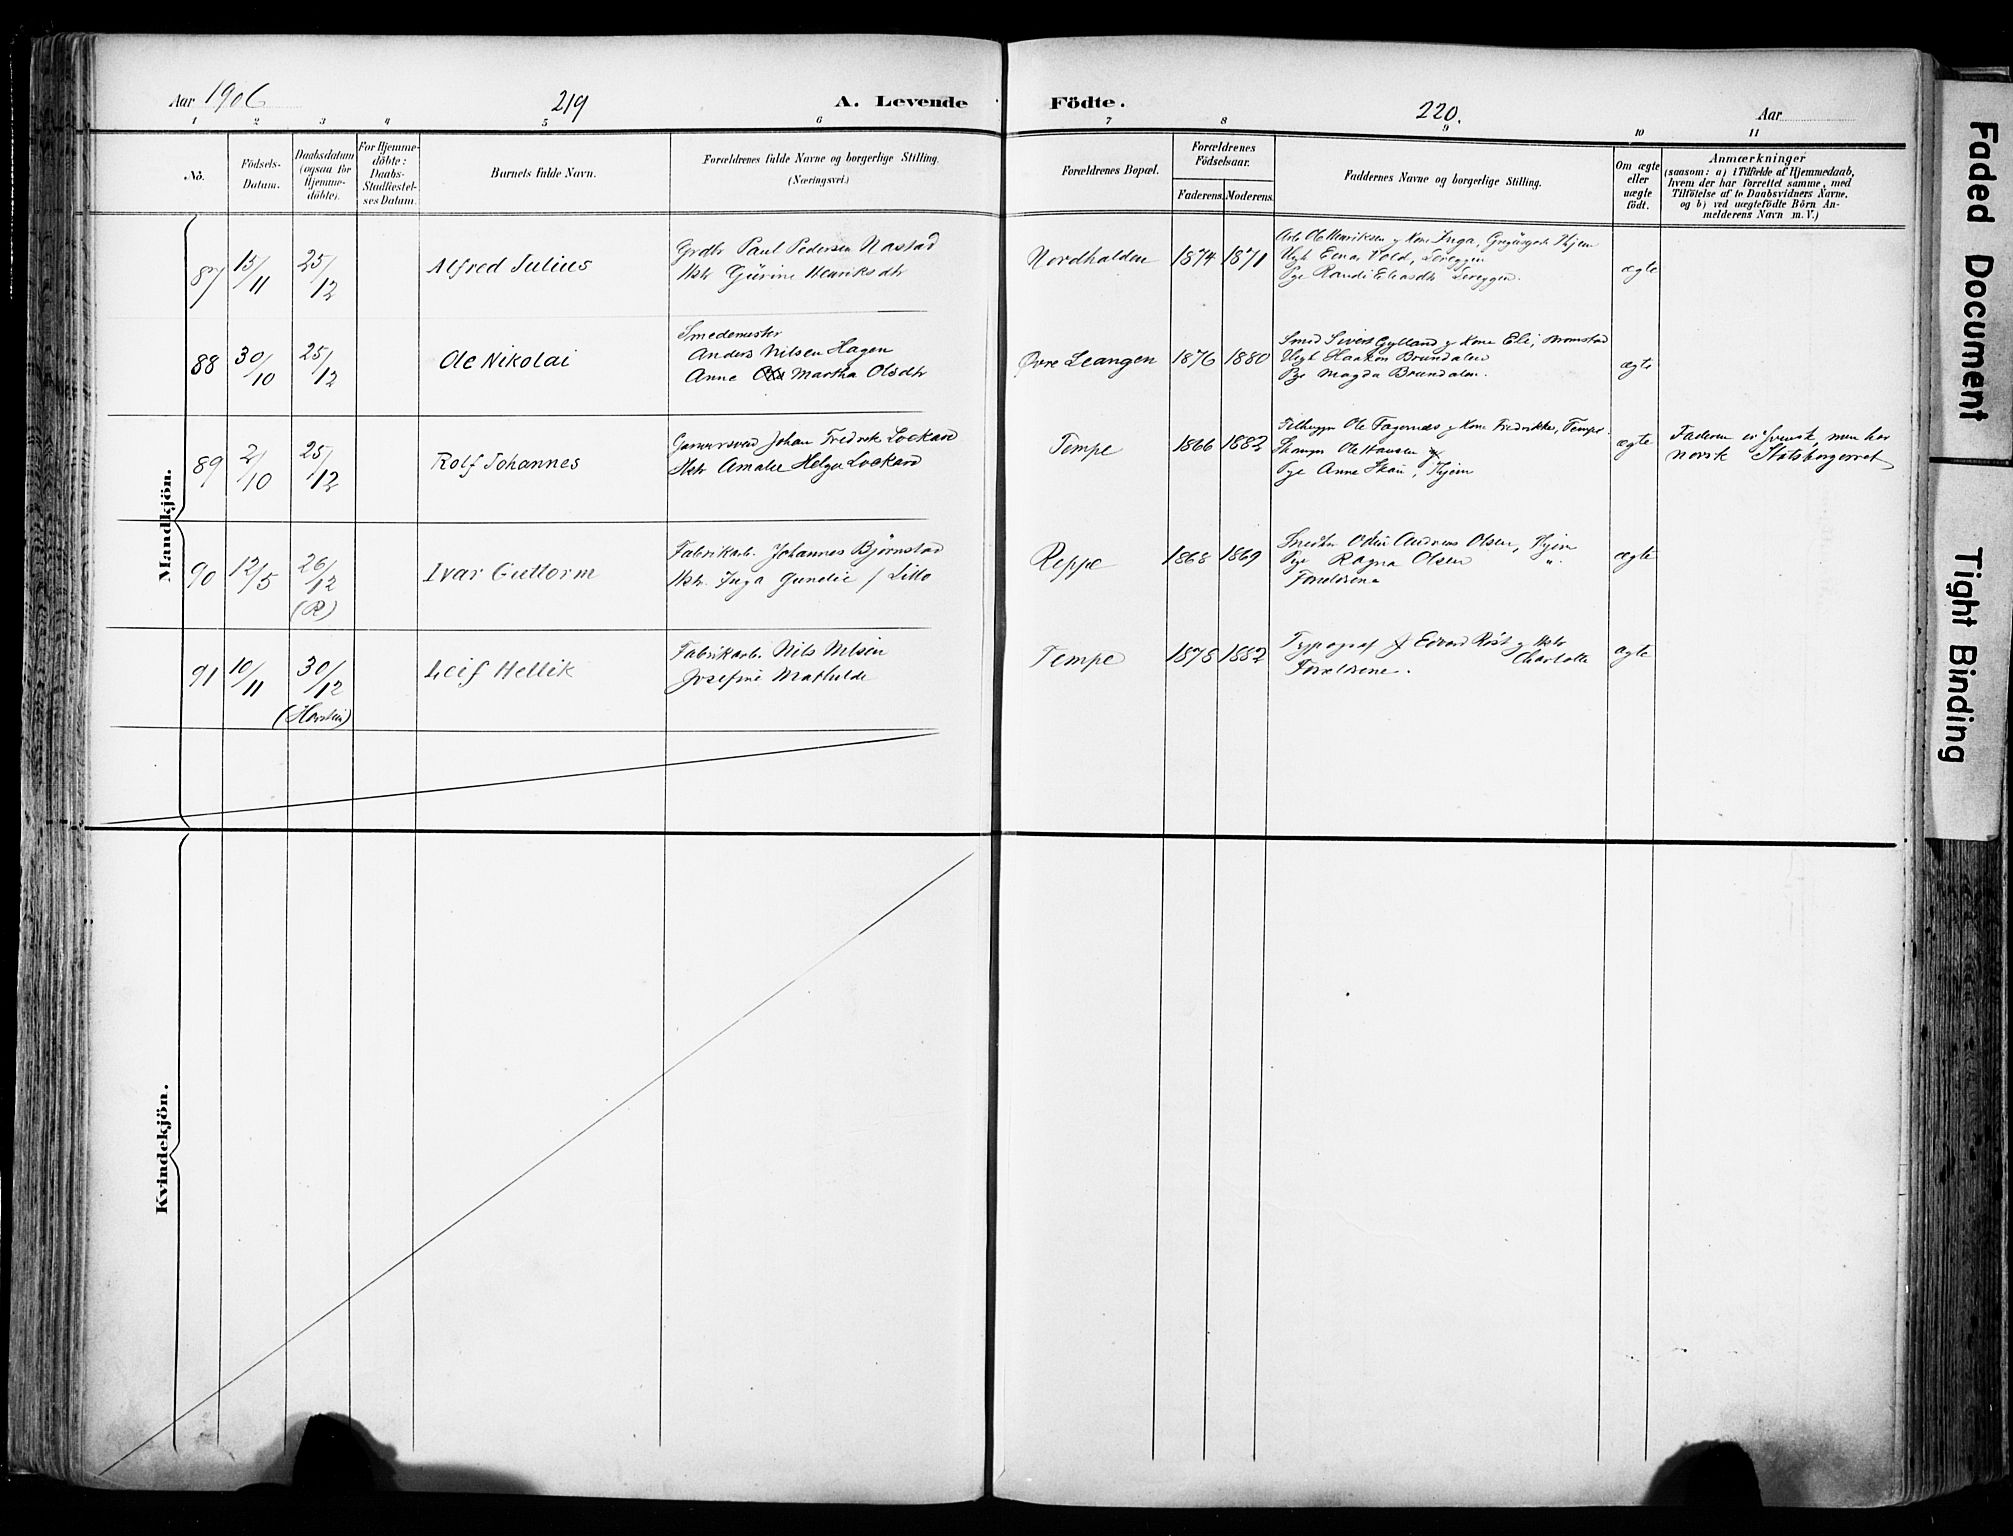 Aar 1906
219
A. Levende
Födte.
220.
Aar
1 2 3 4 5 6 7 8 9 10 11
No.
Födsels-
Datum.
Daabsdatum
(ogsaa for
Hjemme-
döbte).
For Hjemme-
döbte:
Daabs-
Stadfæstel-
ses Datum.
Barnets fulde Navn.
Forældrenes fulde Navne og borgerlige Stilling.
(Næringsvei.)
Forældrenes Bopæl.
Forældrenes
Födselsaar.
Faderens. Moderens.
Faddernes Navne og borgerlige Stilling.
Om ægte
eller
uægte
födt.
Anmærkninger
(saasom: a) i Tilfælde af Hjemmedaab,
hvem der har forrettet samme, med
Tilföielse af to Daabsvidners Navne.
og b) ved uægtefödte Börn An-
melderens Navn m. V.)
Mandkjön.
87 13/11 25/12 Alfred Julius
Grdbr Paul Pedersen Nastad
Hstr Gjürine Henriksdtr
Nordhalden 1874 1871
Arb Ole Henriksen g Kone Inga, Thjem
Ungk Einar Vold, Lereggen
Pge Randi Eliasdtr Lereggen.
ægte
88 30/10 25/12 Ole Nikolai
Smedemester
Anders Nilsen Hagen
Anne Martha Olsdtr
Øvre Leangen 1876 1880
Smed Sivert Gylland g Kone Eli, Bromstad
Ungk Haakon Brundalen
Pge Magda Brundalen.
ægte
89 2/10 25/12 Rolf Johannes
Garversvend Johan Fredrik Lockard
Hstr Amalie Helga Lockard
Tempe 1866 1882
Ole Fagernæs g Kone Fredrikke, Tempe
Ole Hansen
Pge Anne Skau, Thjem
ægte
Faderen er svensk, men har
norsk Statsborgerret
90 12/5 26/12 (R) Ivar Guttorm
Fabrikarb. Johannes Björnstad
Hstr. Inga Gundie f Lillo
Reppe 1868 1869
Odin Andreas Olsen, Thjem
Pge Ragna Olsen "
Forældrene
ægte
91 10/11 30/12 Leif Hellik
Fabrikarb. Nils Nilsen
Josefine Mathilde
Tempe 1878 1882
Typograf Edvard Röst g Hstr
Charlotte
Forældrene.
ægte
Kvindekjön.
Faded Document
Tight Binding